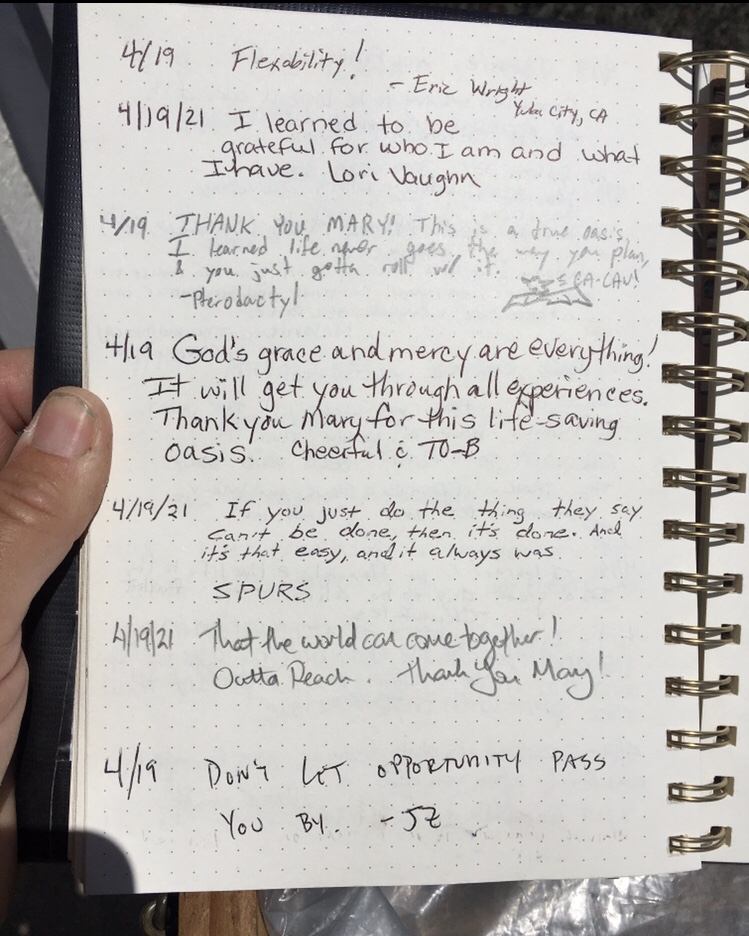 4/19 Flexability!
- Eric Wright
Yuba City, CA
4/19/21 I learned to be
grateful for who I am and what
I have. Lori Vaughn
4/19 THANK YOU MARY! This is a true oasis.
I learned life never goes the way you plan,
& you just gotta roll w/ it.
CA-CAW!
-Pterodactyl
4/19 God's grace and mercy are everything!
It will get you through all experiences.
Thank you Mary for this life-saving
oasis. Cheerful & TO-B
4/19/21 If you just do the thing they say
can't be done, then it's done. And
it's that easy, and it always was.
SPURS
4/19/21 That the world can come together!
Outta Reach. Thank You Mary!
4/19 DON'T LET OPPORTUNITY PASS
YOU BY. -JZ